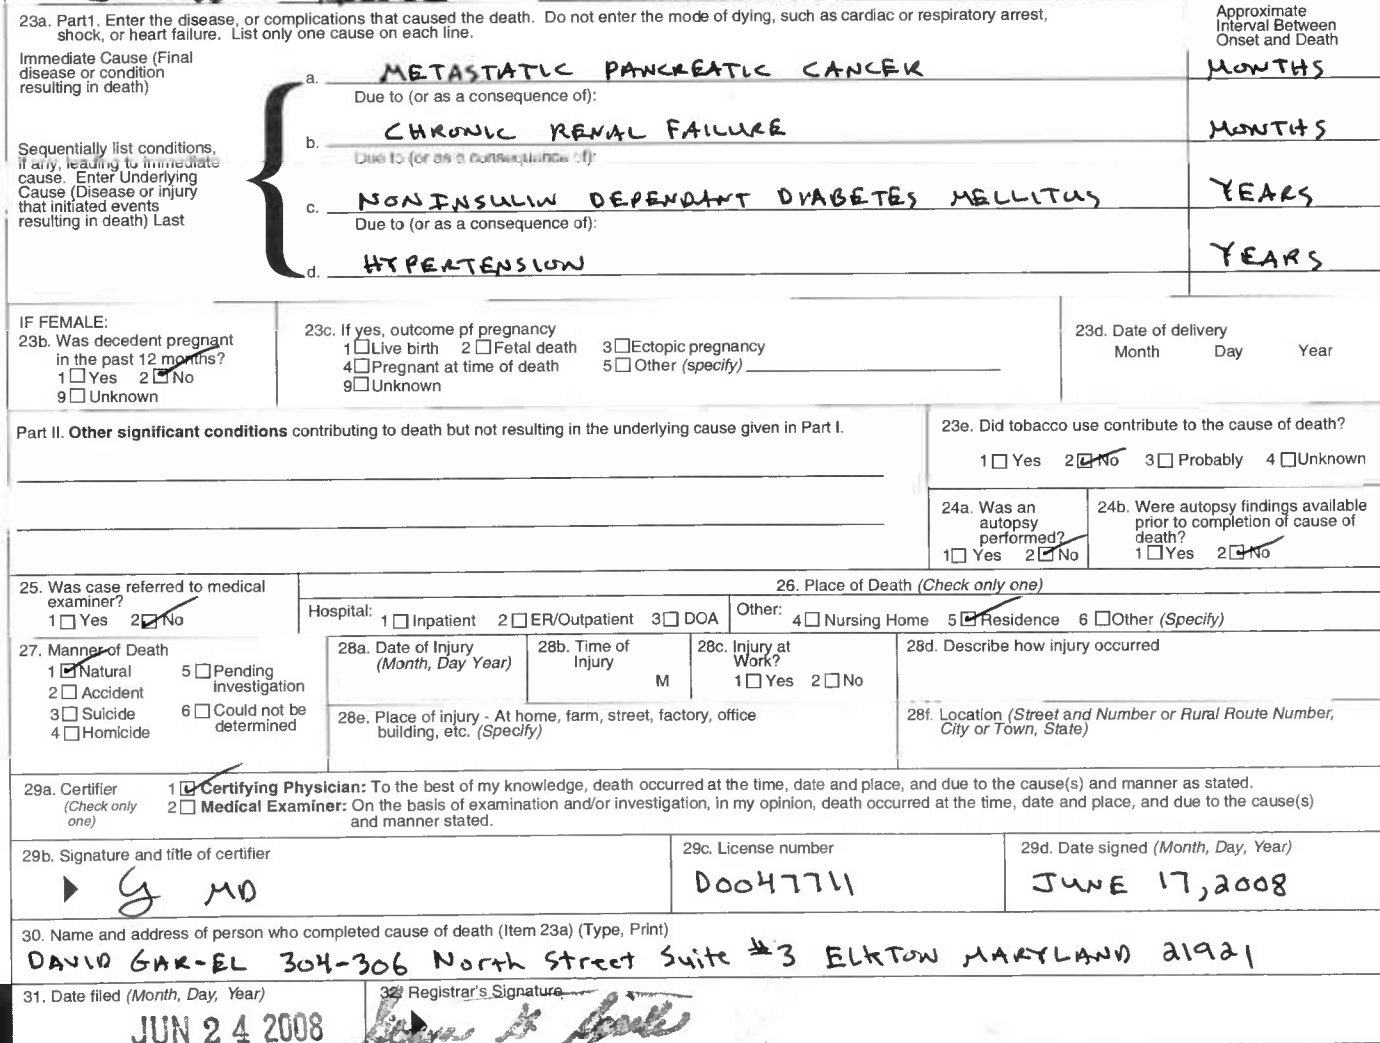 23a. Part1. Enter the disease, or complications that caused the death. Do not enter the mode of dying, such as cardiac or respiratory arrest,
shock, or heart failure. List only one cause on each line.
Approximate
Interval Between
Onset and Death
Immediate Cause (Final
disease or condition
resulting in death)
a. METASTATIC PANCREATIC CANCER MONTHS
Due to (or as a consequence of):
b. CHRONIC RENAL FAILURE MONTHS
Sequentially list conditions,
if any, leading to immediate
cause. Enter Underlying
Cause (Disease or injury
that initiated events
resulting in death) Last
Due to (or as a consequence of):
c. NONINSULIN DEPENDANT DIABETES MELLITUS YEARS
Due to (or as a consequence of):
d. HYPERTENSION YEARS
IF FEMALE:
23b. Was decedent pregnant
in the past 12 months?
1 Yes 2 No
9 Unknown
23c. If yes, outcome pf pregnancy
1 Live birth 2 Fetal death 3 Ectopic pregnancy
4 Pregnant at time of death 5 Other (specify)
9 Unknown
23d. Date of delivery
Month Day Year
Part II. Other significant conditions contributing to death but not resulting in the underlying cause given in Part I.
23e. Did tobacco use contribute to the cause of death?
1 Yes 2 No 3 Probably 4 Unknown
24a. Was an
autopsy
performed?
1 Yes 2 No
24b. Were autopsy findings available
prior to completion of cause of
death?
1 Yes 2 No
25. Was case referred to medical
examiner?
1 Yes 2 No
26. Place of Death (Check only one)
Hospital: 1 Inpatient 2 ER/Outpatient 3 DOA Other: 4 Nursing Home 5 Residence 6 Other (Specify)
27. Manner of Death
1 Natural 5 Pending
investigation
2 Accident
3 Suicide 6 Could not be
determined
4 Homicide
28a. Date of Injury
(Month, Day Year)
28b. Time of
Injury
M
28c. Injury at
Work?
1 Yes 2 No
28d. Describe how injury occurred
28e. Place of injury - At home, farm, street, factory, office
building, etc. (Specify)
28f. Location (Street and Number or Rural Route Number,
City or Town, State)
29a. Certifier
(Check only
one)
1 Certifying Physician: To the best of my knowledge, death occurred at the time, date and place, and due to the cause(s) and manner as stated.
2 Medical Examiner: On the basis of examination and/or investigation, in my opinion, death occurred at the time, date and place, and due to the cause(s)
and manner stated.
29b. Signature and title of certifier
MD
29c. License number
D0047711
29d. Date signed (Month, Day, Year)
JUNE 17, 2008
30. Name and address of person who completed cause of death (Item 23a) (Type, Print)
DAVID GAR-EL 304-306 North Street Suite #3 ELKTON MARYLAND 21921
31. Date filed (Month, Day, Year)
JUN 24 2008
32. Registrar's Signature